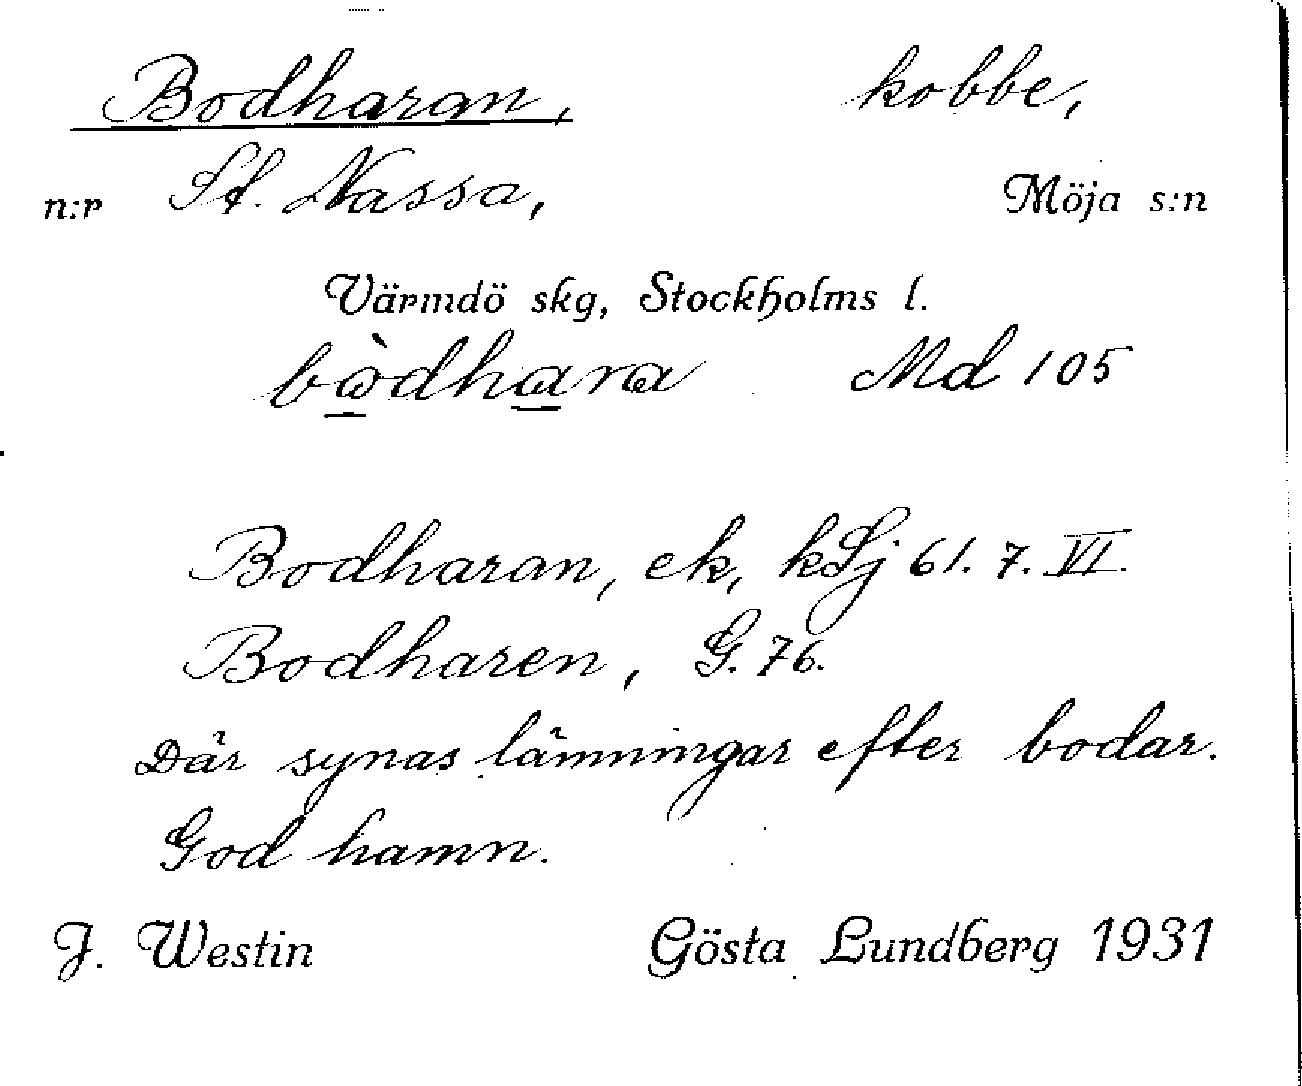 Bodharan, kobbe,
n:r St. Nassa, Möja s:n
Värmdö skg, Stockholms l.
bòdhara Md 105
Bodharan, ek, kSj 61. 7. VI.
Bodharen, G. 76.
Där synas lämningar efter bodar.
God hamn.
J. Westin Gösta Lundberg 1931